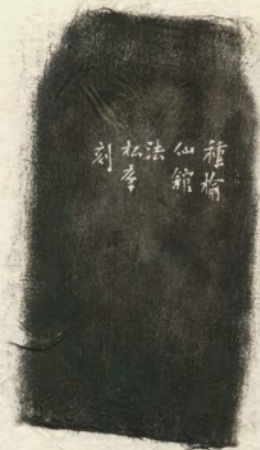 種榆
仙館
法
松
刻